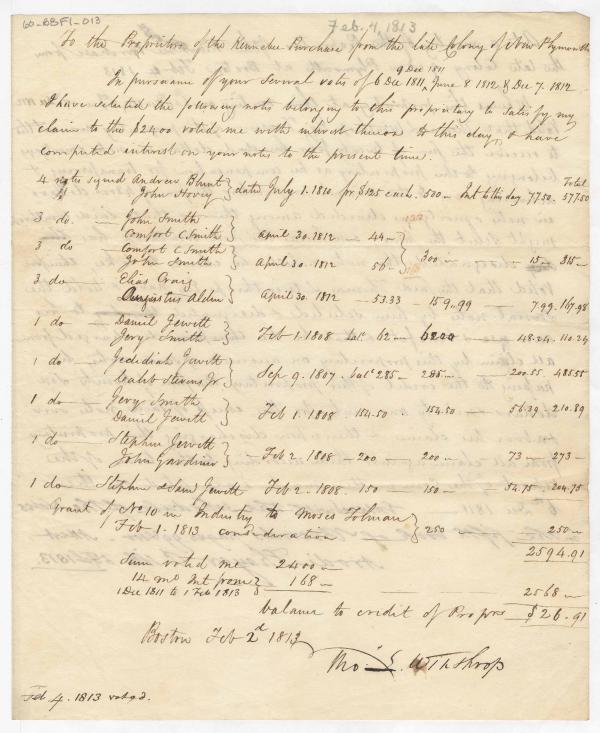 60-BBF1-013
Feb. 4, 1813
To the Proprietors of the Kennebec Purchase from the late Colony of New Plymouth
9 Dec 1811
In pursuance of your several votes of 6 Dec 1811, June 8 1812 & Dec 7. 1812
I have selected the following notes belonging to this propriety to satisfy my
claim to the $2400 voted me with interest thereon to this day, & have
computed interest on your notes to the present time.
Total
4 notes signd Andrew Blunt
John Hovey } date July 1. 1810. for $125 each. 500 — Int to this day 77.50. 577.50
3 do. — John Smith
Comfort C Smith } April 30. 1812 — 44 —
3 do — Comfort C Smith
John Smith } April 30. 1812 56 — } 300 — — 15 — 315 —
3 do — Elias Craig
Augustus Alden } April 30. 1812 — 53.33 — 159.99 — 7.99. 167.98
1 do — Daniel Jewett
Jery Smith } Feb 1. 1808 bal. 62 — 62 — 48.24. 110.24
1 do Jedediah Jewett
Caleb Stevens Jr } Sep 9. 1807. bale 285 — 285 — — 200.55. 485.55
1 do — Jery Smith
Daniel Jewett } Feb 1. 1808. 154.50 . 154.50 — 56.39 — 210.89
1 do — Stephen Jewett
John Gardiner } — Feb 2. 1808 — 200 — 200 — — 73 — 273 —
1 do Stephen & Saml Jewett Feb 2 — 1808. 150 — 150 — — 54.75 — 204.75
Grant of No 10 in Industry to Moses Tolman
Feb 1 - 1813 consideration } 250 — — 250 —
2594.91
Sum voted me 2400 —
14 mo Int from
1 Dec 1811 to 1 Feb 1813 } 168 — — 2568 —
balance to credit of Proprs $26.91
Boston Feb 2d 1813
Tho. L. Winthrop
Feb 4. 1813 voted.